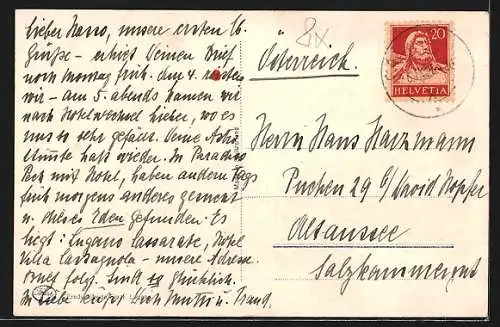 Lieber Hans, unsere ersten lb.
Grüsse - erhielt Deinen Brief
noch Montag früh. den 4. reisten
wir - am 5. abends kamen wir
nach Hotelwechsel hieher, wo es
uns so sehr gefällt. Deine
stimmte halt wieder. In Paradiso
Pech mit Hotel, haben andern Tags
früh morgens anderes gesucht
u. dieses Eden gefunden. Es
liegt: Lugano Cassarate, Hotel
Villa Castagnola - unsere Adresse.
Brief folgt. Sind so glücklich.
In Liebe Mutti u.
8x
Österreich.
20
HELVETIA
Herrn Hans Harzmann
Puchen 29 b/David Hopfer
Altaussee
Salzkammergut